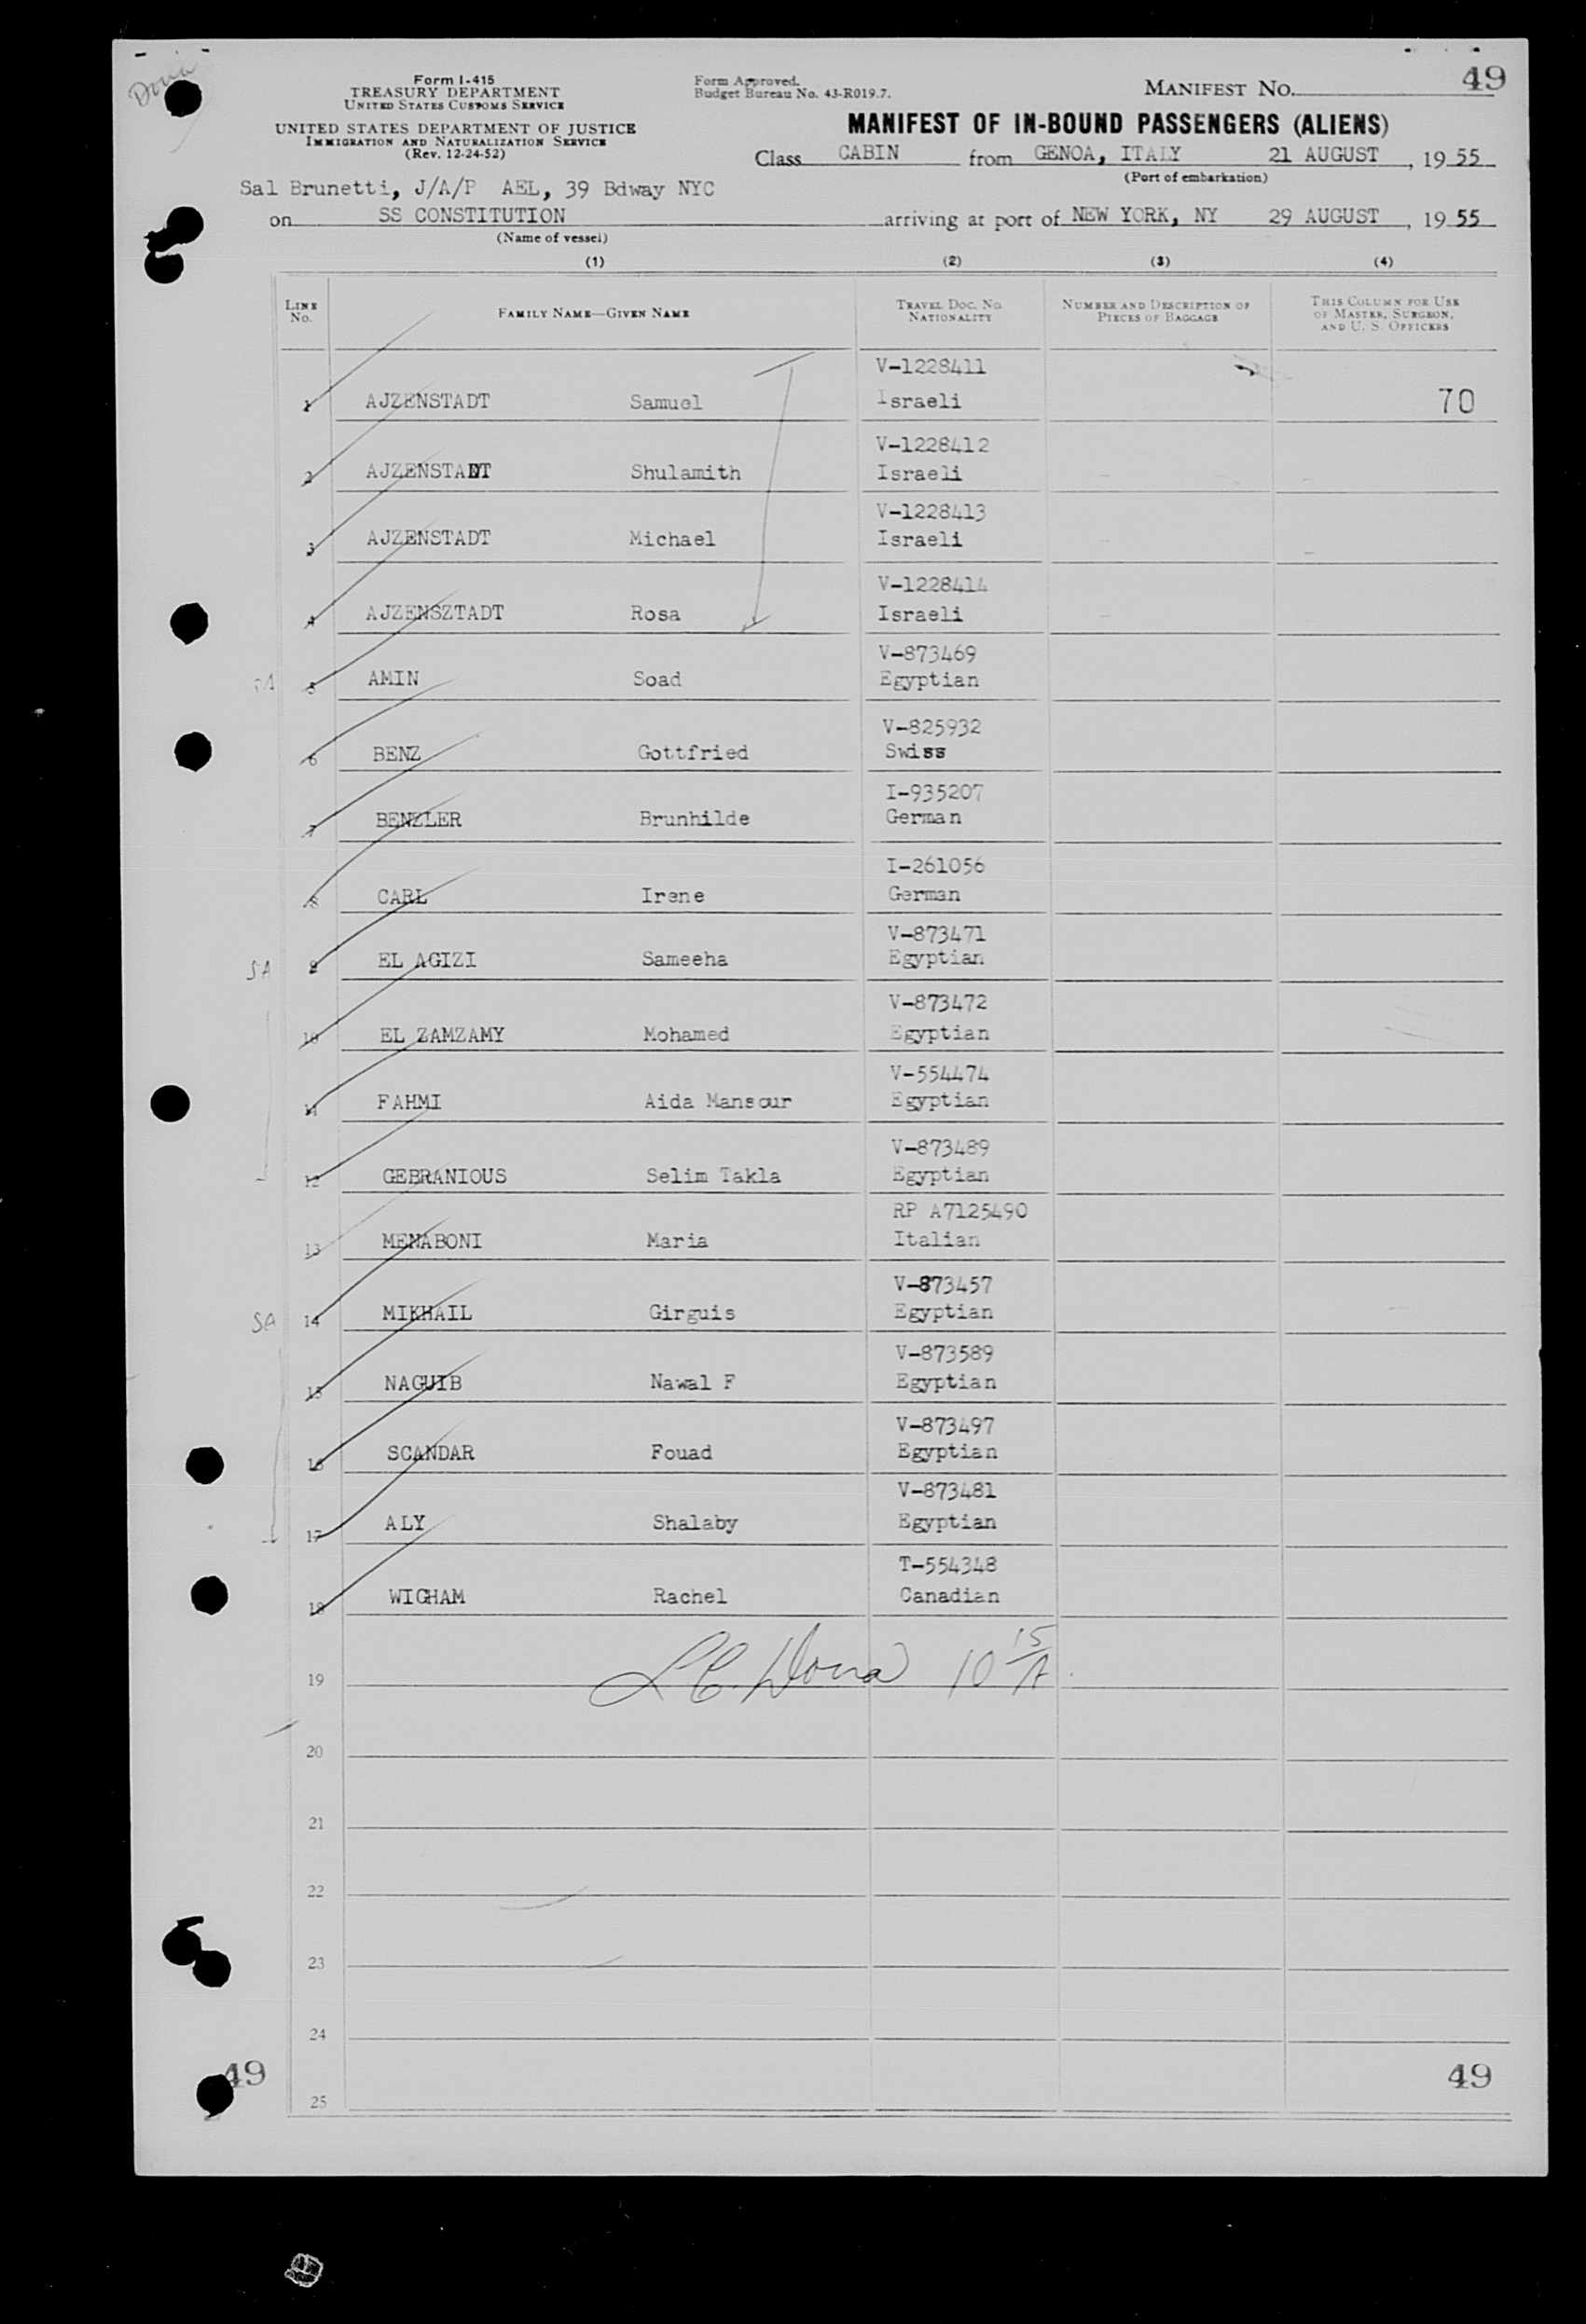 Dona
Form I-415
TREASURY DEPARTMENT
UNITED STATES CUSTOMS SERVICE
UNITED STATES DEPARTMENT OF JUSTICE
IMMIGRATION AND NATURALIZATION SERVICE
(Rev. 12-24-52)
Form Approved.
Budget Bureau No. 43-R019.7.
MANIFEST No. 49
MANIFEST OF IN-BOUND PASSENGERS (ALIENS)
Class CABIN from GENOA, ITALY 21 AUGUST, 1955
(Port of embarkation)
Sal Brunetti, J/A/P AEL, 39 Bdway NYC
on SS CONSTITUTION arriving at port of NEW YORK, NY 29 AUGUST, 1955
(Name of vessel)
(1) (2) (3) (4)
LINE No. FAMILY NAME—GIVEN NAME TRAVEL DOC. No. NATIONALITY NUMBER AND DESCRIPTION OF PIECES OF BAGGAGE THIS COLUMN FOR USE OF MASTER, SURGEON, AND U. S. OFFICERS
V-1228411
1 AJZENSTADT Samuel Israeli 70
V-1228412
2 AJZENSTADT Shulamith Israeli
V-1228413
3 AJZENSTADT Michael Israeli
V-1228414
4 AJZENSZTADT Rosa Israeli
V-873469
5 AMIN Soad Egyptian
V-825932
6 BENZ Gottfried Swiss
I-935207
7 BENZLER Brunhilde German
I-261056
8 CARL Irene German
V-873471
SA 9 EL AGIZI Sameeha Egyptian
V-873472
10 EL ZAMZAMY Mohamed Egyptian
V-554474
11 FAHMI Aida Mansour Egyptian
V-873489
12 GEBRANIOUS Selim Takla Egyptian
RP A7125490
13 MENABONI Maria Italian
V-873457
SA 14 MIKHAIL Girguis Egyptian
V-873589
15 NAGUIB Nawal F Egyptian
V-873497
16 SCANDAR Fouad Egyptian
V-873481
17 ALY Shalaby Egyptian
T-554348
18 WIGHAM Rachel Canadian
19 Dona 10 15/A
20
21
22
23
24
49 49
25